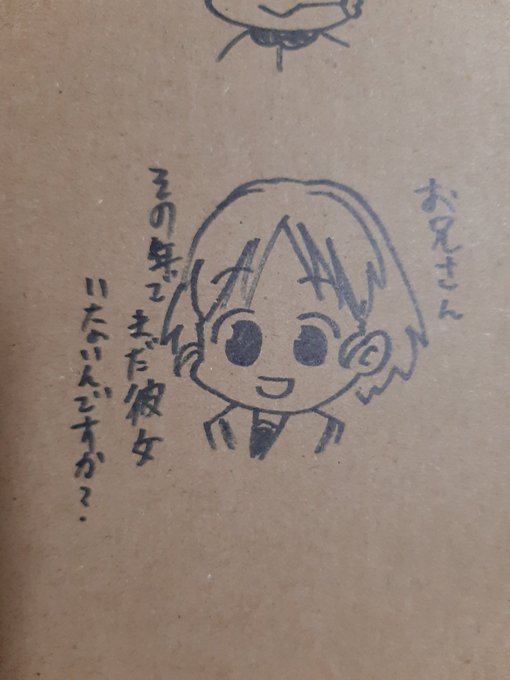 お兄さん
その年でまだ彼女
いたいんですか?